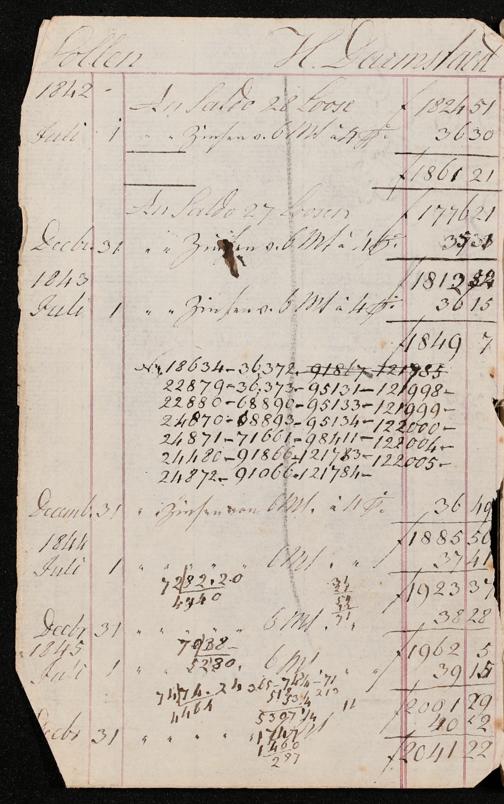 Sollen H. Darmstaedt
1842
An Saldo 28 Loose f 1824 51
Juli 1 " " Zinsen v. 6 Mt à 4 pr. 36 30
f 1861 21
An Saldo 27 Loosen f 1776 21
Decbr. 31 " " Zinsen v. 6 Mt à 4 pr. 35 31
1843 f 1812
Juli 1 " " Zinsen v. 6 Mt à 4 pr. 36 15
f 1849 7
No 18634 - 36372 - 91867 - 121785
22879 - 36373 - 95131 - 121998 -
22880 - 68890 - 95133 - 121999 -
24870 - 68893 - 95134 - 122000 -
24871 - 71661 - 98411 - 122004 -
24480 - 91866 - 121783 - 122005 -
24872 - 91066 - 121784 -
Decemb. 31 " Zinsen von 6 Mt. à 4 pr. 36 49
1844 f 1885 56
Juli 1 " " " " 6 Mt. " " 37 41
7282.20 f 1923 37
4340
Decbr 31 " " " " 6 Mt. " 38 28
1845 7988- f 1962 5
5280.
Juli 1 " " 6 Mt " 39 15
7474. 24
4464 f 2001 29
5307 1/4
Decbr 31 " " " " 40 2
1460
287 f 2041 22